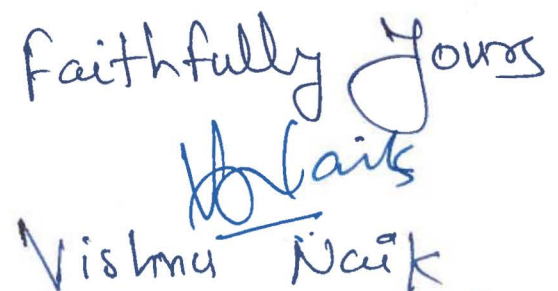 Faithfully Yours
VNaik
Vishnu Naik